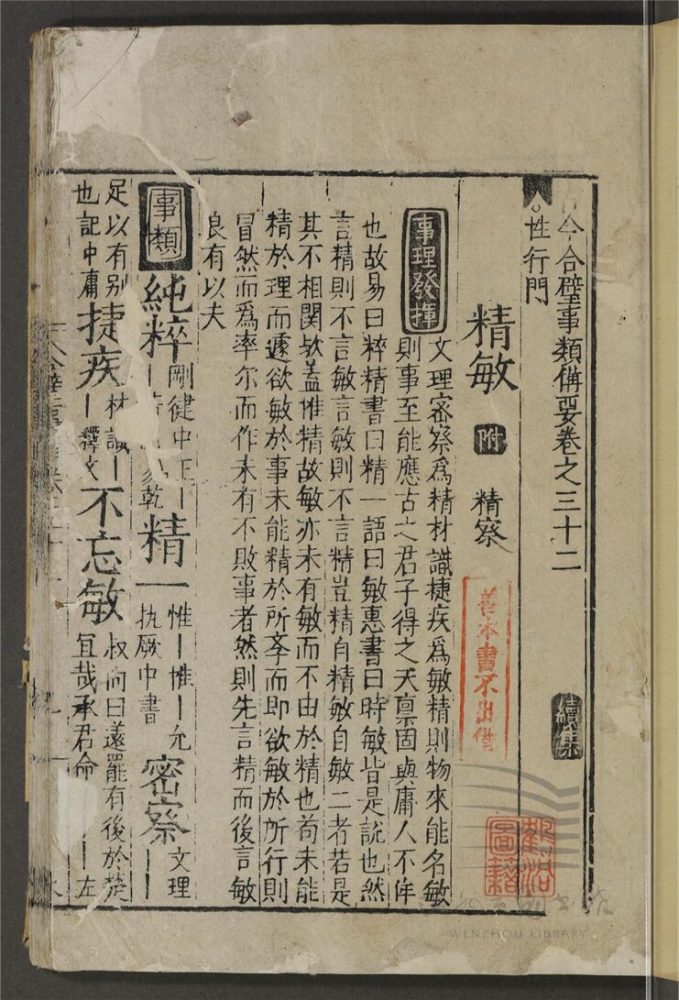 今合璧事類備要卷之三十二 續集
性行門
精敏 附 精察
事理發揮
文理密察爲精材識捷疾爲敏精則物來能名敏
則事至能應古之君子得之天禀固與庸人不侔
也故易曰粹精書曰精一語曰敏惠書曰時敏皆是說也然
言精則不言敏言敏則不言精豈精自精敏自敏二者若是
其不相関欤蓋惟精故敏亦未有敏而不由於精也苟未能
精於理而遽欲敏於事未能精於所存而即欲敏於所行則
冒然而爲率尔而作未有不敗事者然則先言精而後言敏
良有以夫
事類 純粹 剛健中正｜ 易乾 精一 惟｜惟｜允執厥中書 密察 文理｜｜
足以有别也記中庸 捷疾 材識｜｜釋文 不忘敏 叔向曰薳罷有後於楚宜哉承君命｜｜｜左
善本書不出借
圖籍
WENZHOU LIBRARY